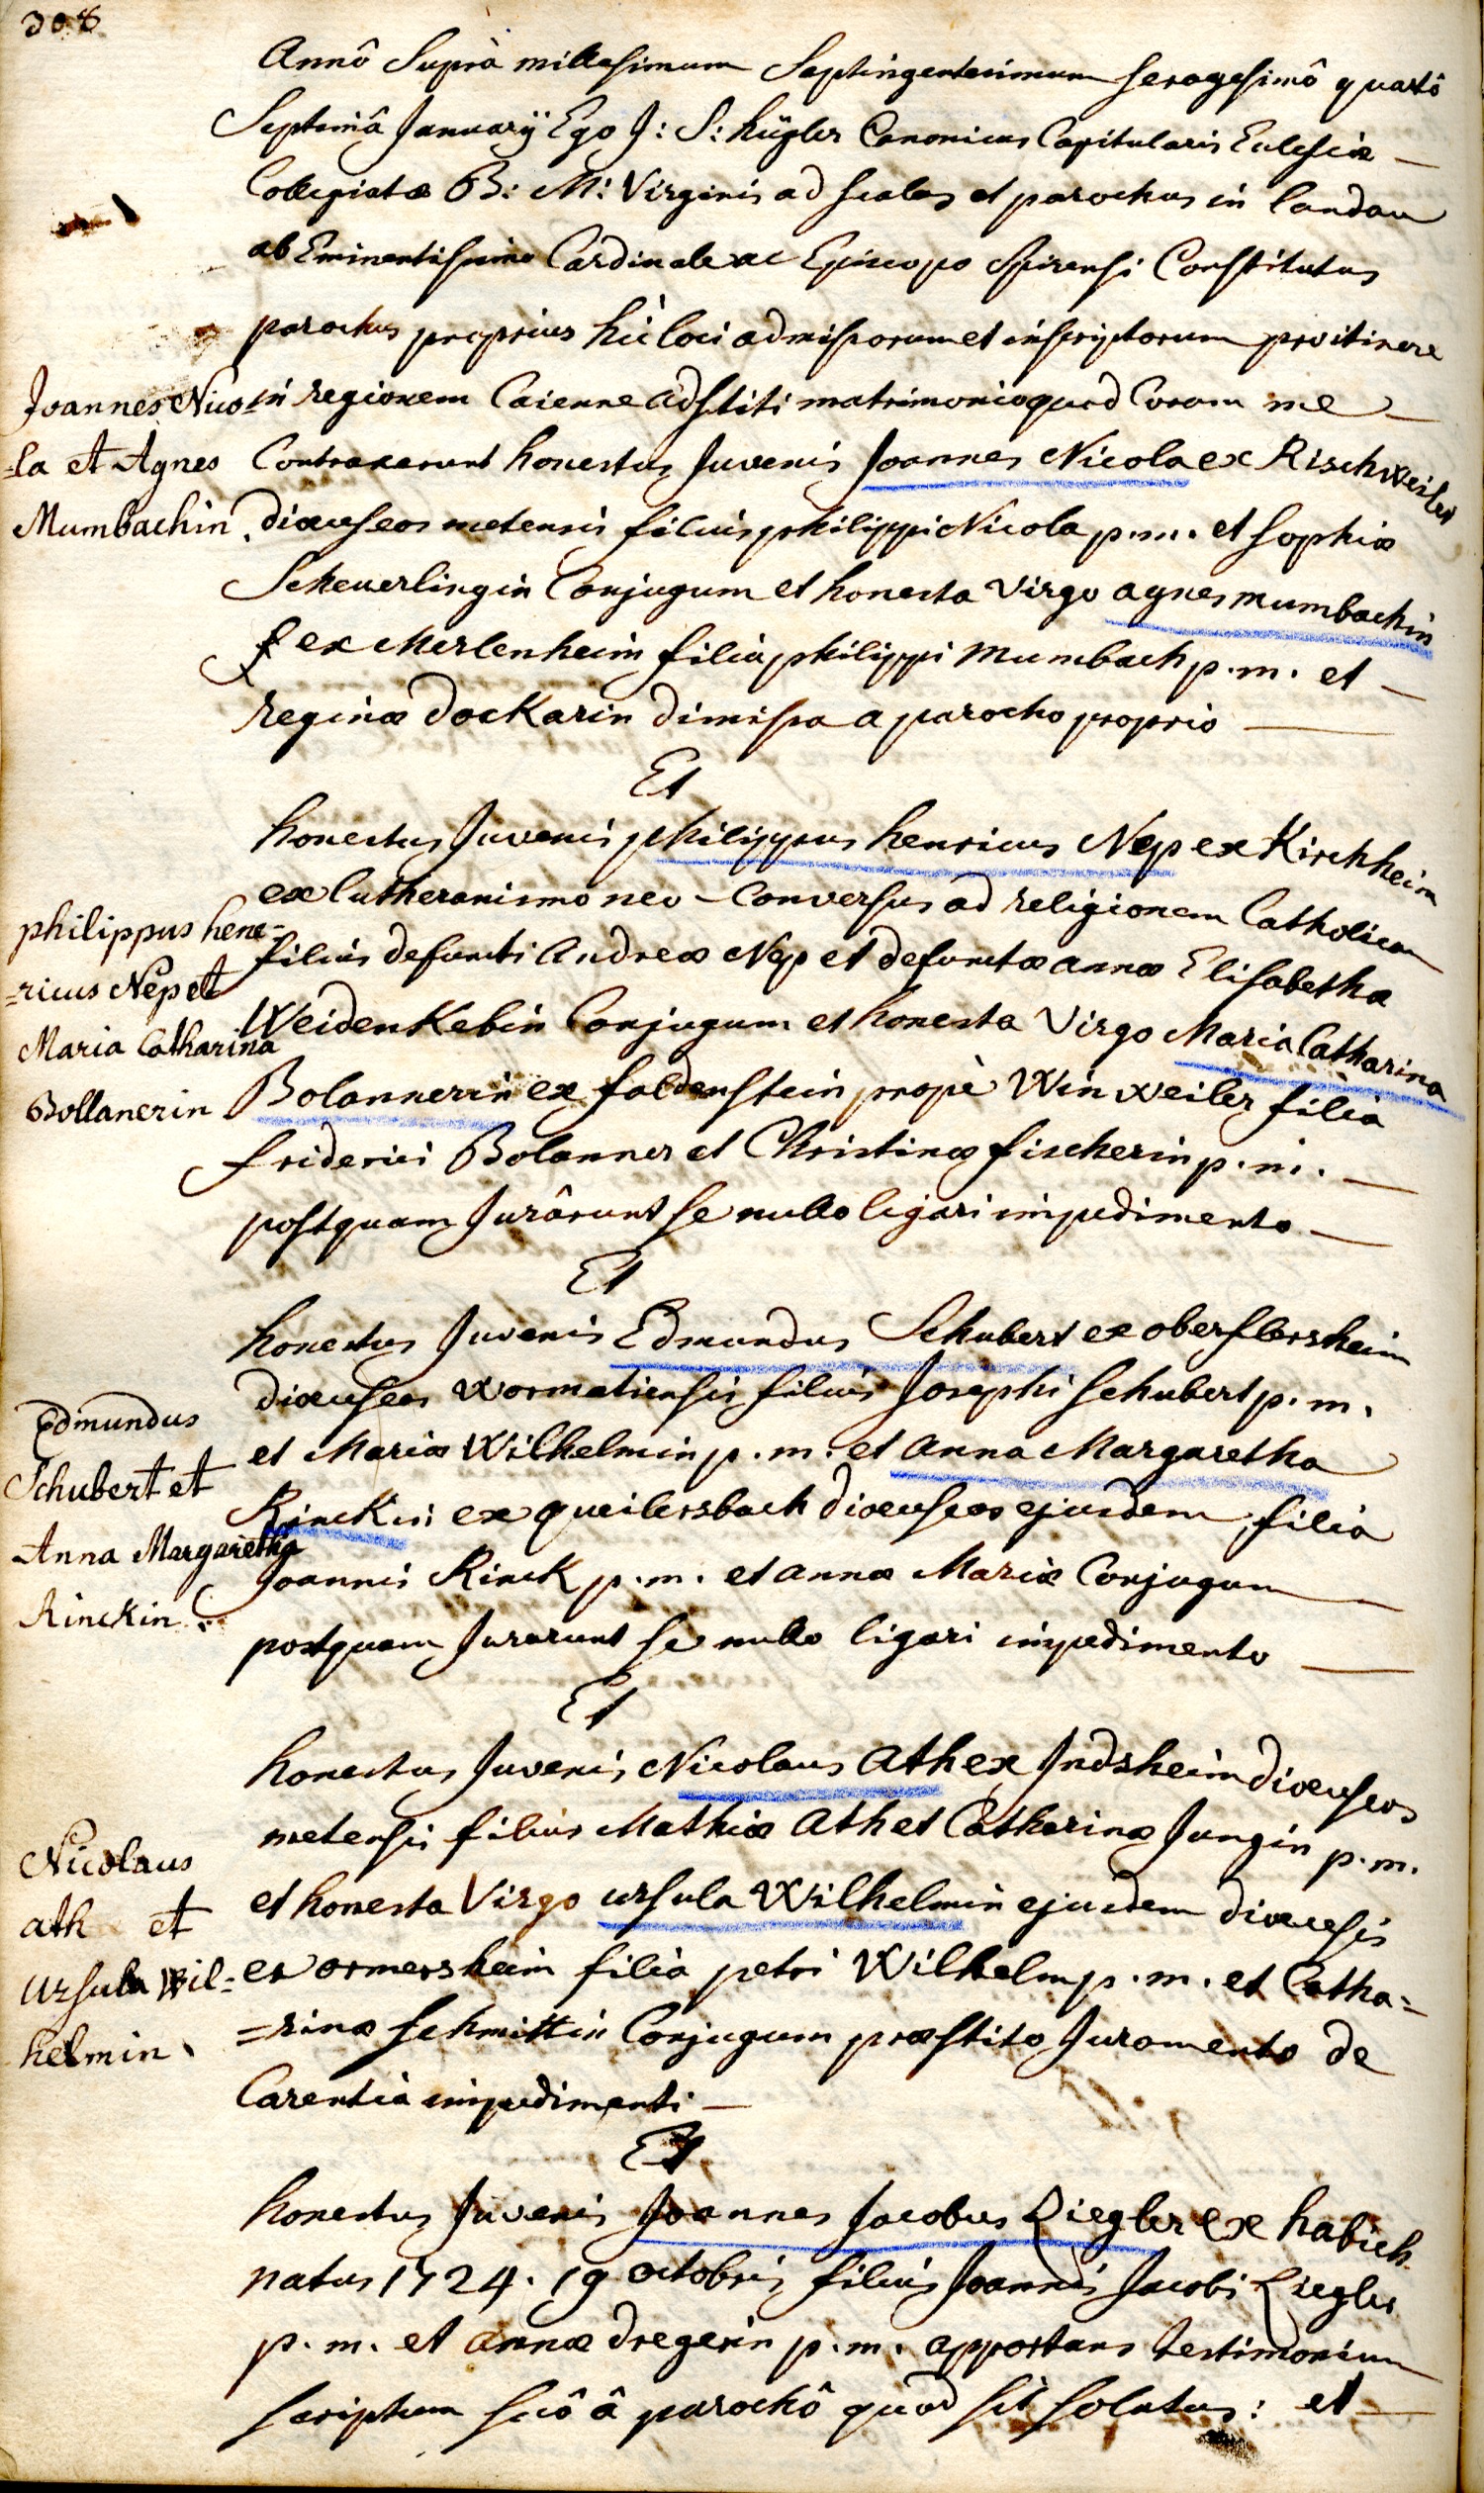 308
Annô Suprà millesimum Septingentesimum sexagesimô quartô
Septimâ January Ego J: S: hügler Canonicus Capitularis Eulesiæ
Collegiatæ B: M: Virginis ad scalas et parochus in landau
ab Eminentissimo Cardinale ac Episcopo Spirensi Constitutus
parochus proprius hic loci admissorum et inscriptorum pro itinere
in regionem Caienne adstiti matrimonio quod Coram me
Joannes Nico=
=la et Agnes
Mumbachin.
Contraxerunt honestus Juvenis Joannes Nicola ex Rischweiler
diœceseos metensis filius philippi Nicola p.m. et sophiæ
Scheuerlingin Conjugum et honesta virgo agnes mumbachin
ex Merlenheim filia philippi Mumbach p.m. et
reginæ dockarin dimissa a parocho proprio
Et
honestus Juvenis philippus henricus Nep ex Kirchheim
ex lutheranismo neo-Conversus ad religionem Catholicam
philippus hene=
=ricus Nep et
Maria Catharina
Bollanerin
filius defuncti Andreæ Nep et defunctæ annæ Elisabetha
Weidenkebin Conjugum et honesta Virgo Maria Catharina
Bolannerin ex faldenstein propè Winweiler filia
friderici Bolanner et Christinæ fischerin p.m.
postquam Jurârunt se nullo ligari impedimento
Et
honestus Juvenis Edmundus Schubert ex oberflersheim
diœceseos wormatiensis filius Josephi schubert p.m.
Edmundus
Schubert et
Anna Margaretha
Rinckin.
et Mariæ Wilhelmin p.m. et anna Margaretha
Rinckin ex queilersbach diœceseos ejusdem, filia
Joannis Rinck p.m. et annæ Mariæ Conjugum
postquam Jurarunt se nullo ligari impedimento
Et
honestus Juvenis Nicolaus Ath ex Indsheim diœceseos
metensis filius Mathiæ Ath et Catharinæ Jungin p.m.
Nicolaus
ath et
Ursula Wil=
helmin.
et honesta Virgo ursula Wilhelmin ejusdem diœcesis
ex ormersheim filia petri Wilhelm p.m. et Catha=
=rinæ schmittin Conjugum præstito Juramento de
Carentia impedimenti
Et
honestus Juvenis Joannes Jacobus Ziegler ex habich
natus 1724. 19 octobris filius Joannis Jacobi Ziegler
p.m. et annæ dregerin p.m. apportans testimonium
scriptum suô â parochô quod sit solutus: et